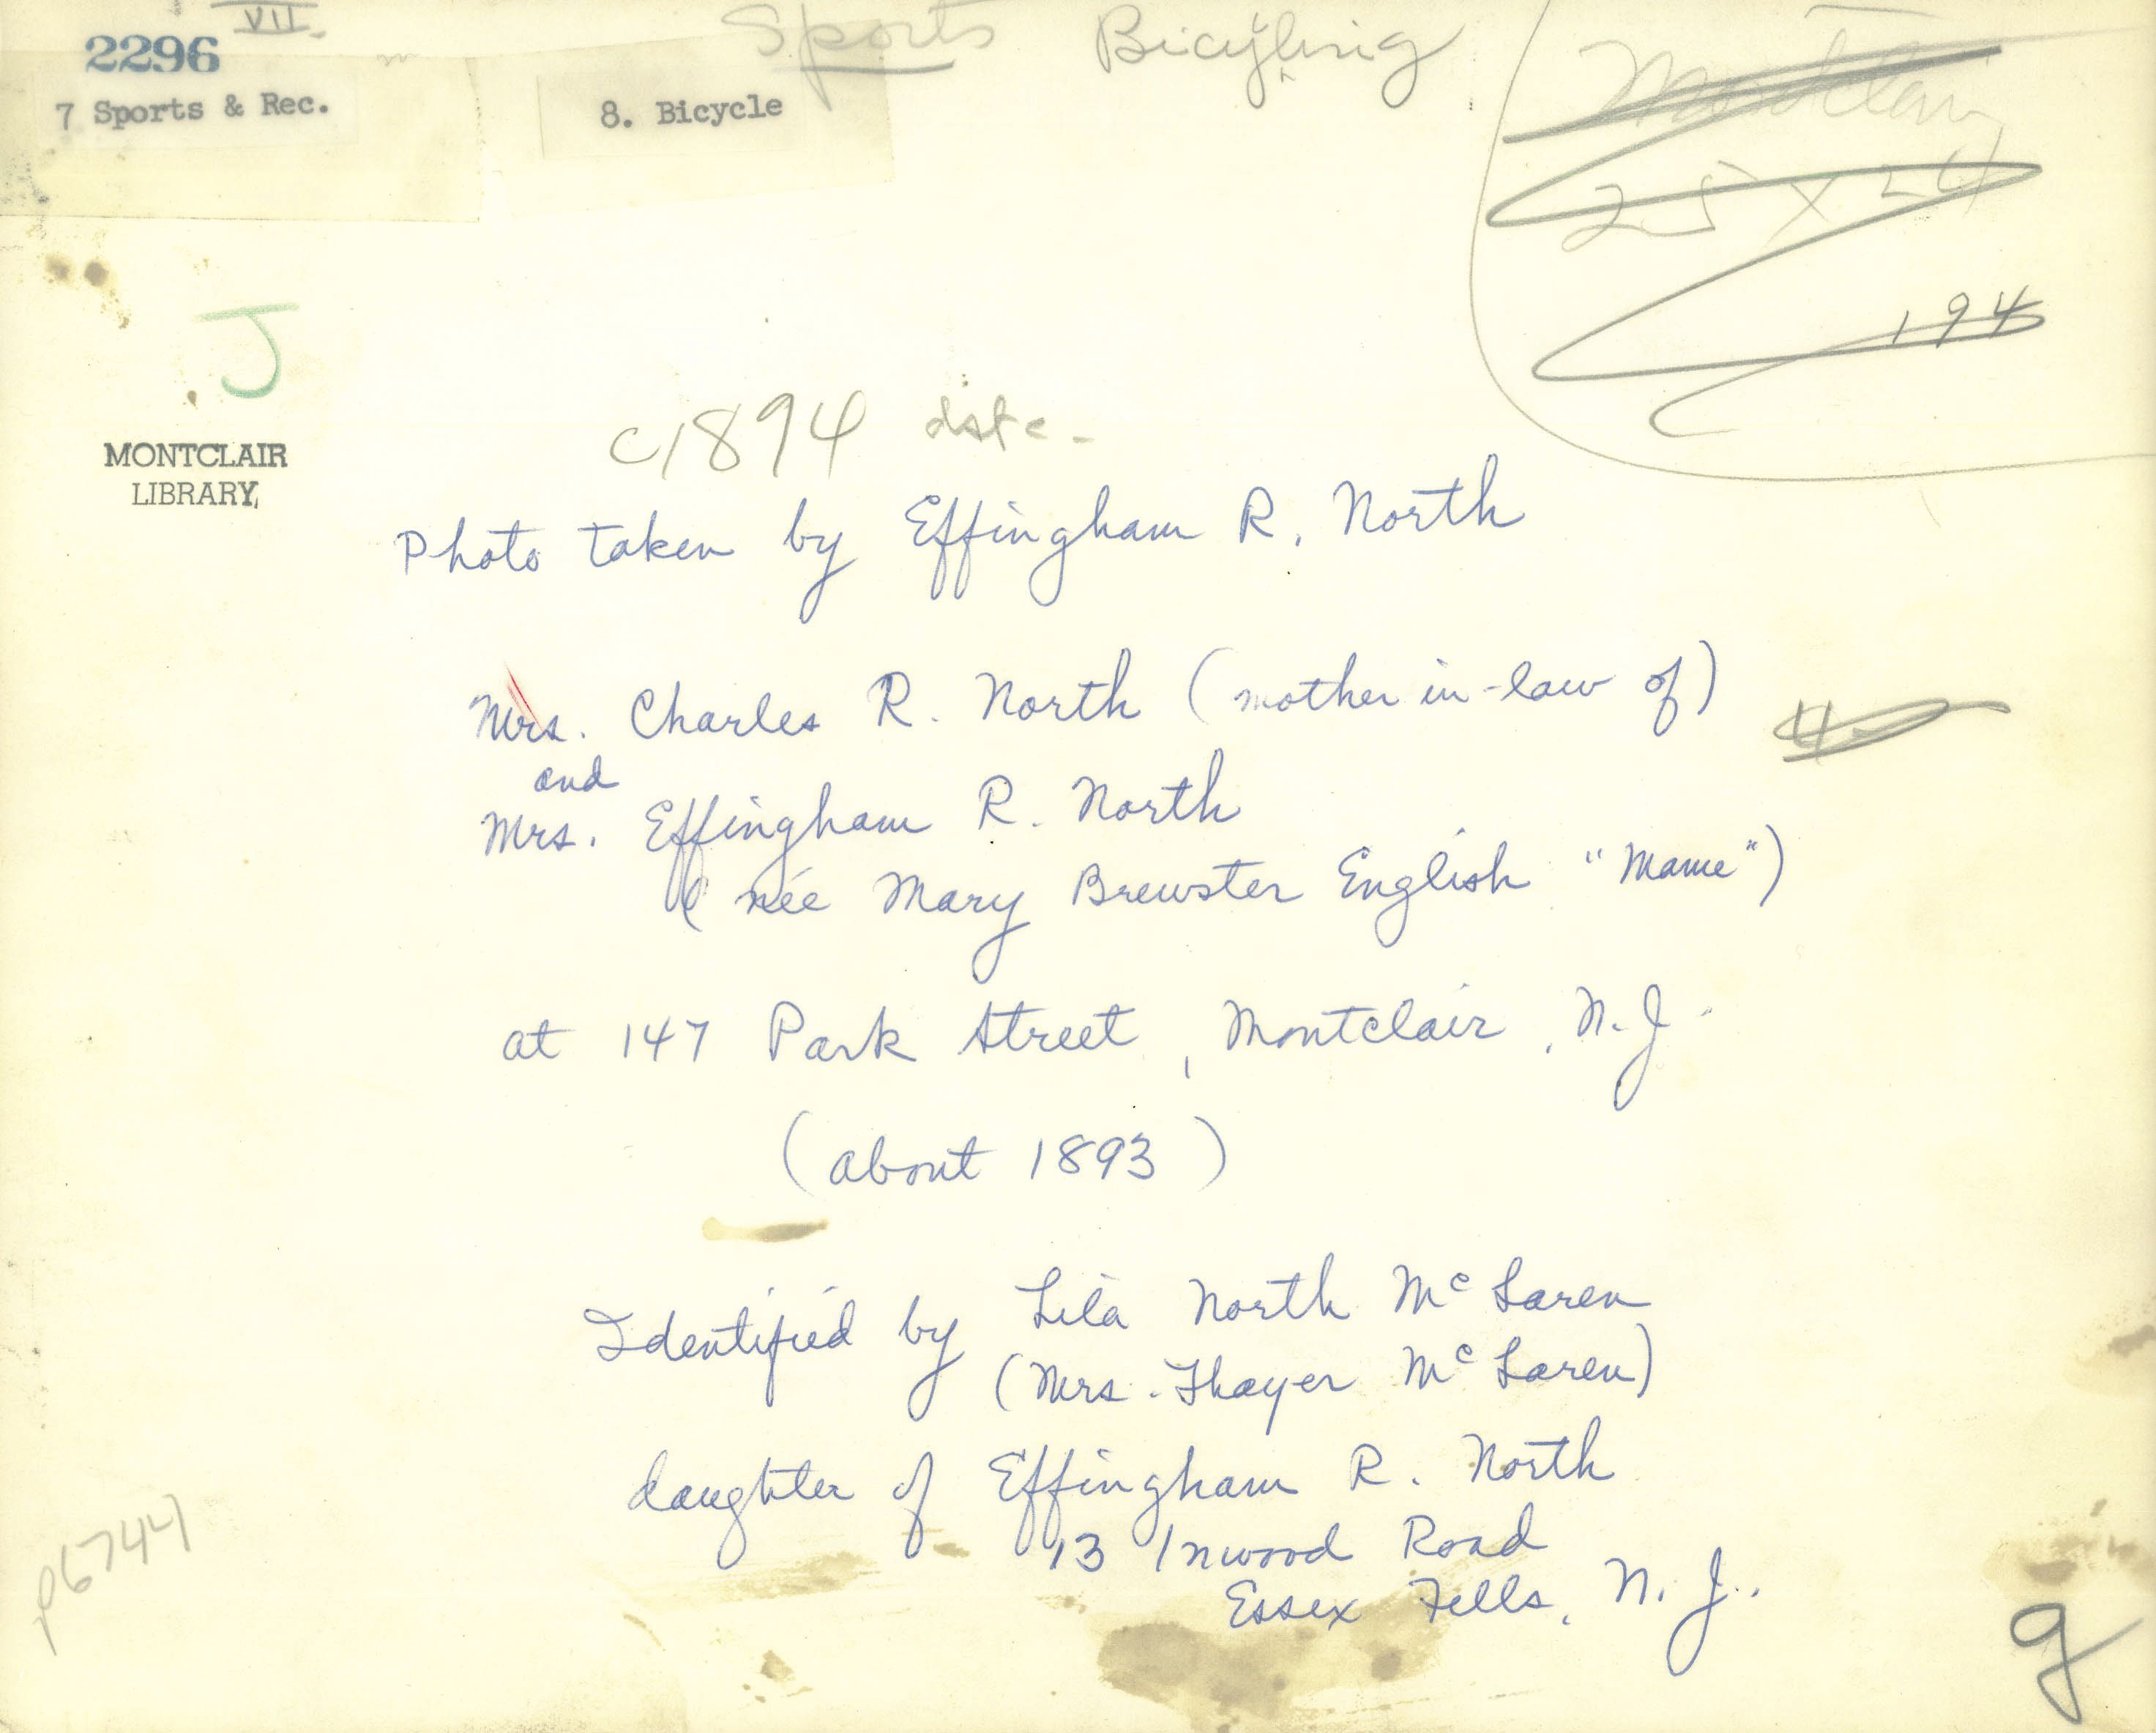 VII.
2296
7 Sports & Rec.
8. Bicycle
Sports Bicycling
Montclair
25 X
194
J
MONTCLAIR
LIBRARY
c1894 date.
Photo taken by Effingham R. North
Mrs. Charles R. North (mother in-law of)
and
Mrs. Effingham R. North
(née Mary Brewster English "Mame")
at 147 Park Street, Montclair, N.J.
(about 1893)
Identified by Lila North McLaren
(Mrs. Thayer McLaren)
daughter of Effingham R. North
13 Inwood Road
Essex Fells, N.J.
p6744
g